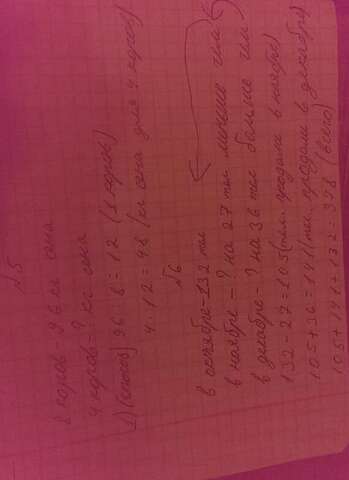 №5
8 коров - 96 кг сена
4 коров - ? кг сена
1) (способ) 96:8=12 (1 корова)
4·12=48 (кг сена для 4 коров)
№6
в октябре - 132 тел
в ноябре - ? на 27 тел меньше чем
в декабре - ? на 36 тел больше чем
132-27=105 (тел. продали в ноябре)
105+36=141 (тел. продали в декабре)
105+141+132=378 (всего)